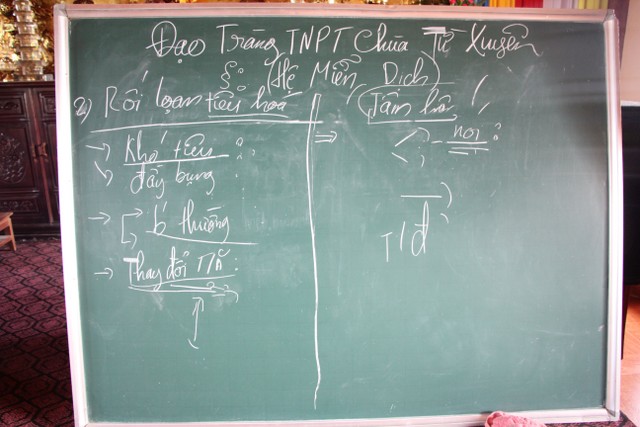 Đạo Tràng TNPT Chùa Từ Xuyên
(Hệ Miễn Dịch)
2) Rối loạn tiêu hoá
→ Khó tiêu :
đầy bụng
→ bí thường
→ Thay đổi :
Tâm
⇒ - nơi :
T/đ